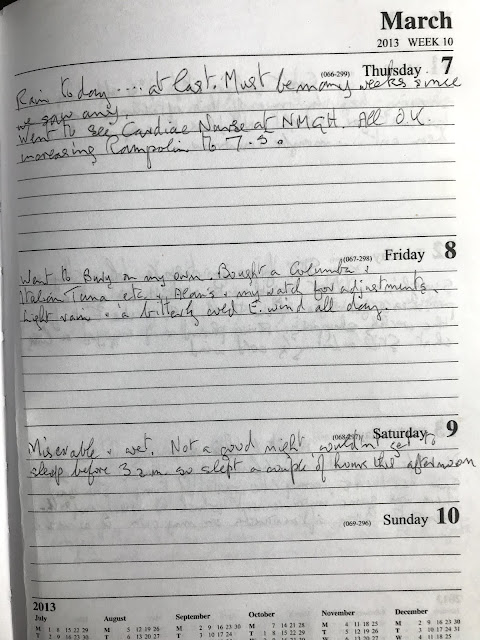 March
2013 WEEK 10
(066-299) Thursday 7
Rain today .... at last. Must be many weeks since
we saw any
Went to see Cardiac Nurse at NMGH. All O.K.
increasing Rampolin to 7.5.
(067-298) Friday 8
Went to Bury on my own. Bought a Columba,
Italian Tuna etc. , Alan's , my watch for adjustments.
Light rain , a bitterly cold E. wind all day.
(068-297) Saturday 9
Miserable , wet. Not a good night wouldn't get to
sleep before 3 am so slept a couple of hours this afternoon
(069-296) Sunday 10
2013
July August September October November December
M 1 8 15 22 29 M 5 12 19 26 M 2 9 16 23 30 M 7 14 21 28 M 4 11 18 25 M 2 9 16 23 30
T 2 9 16 23 30 T 6 13 20 27 T 3 10 17 24 T 1 8 15 22 29 T 5 12 19 26 T 3 10 17 24 31